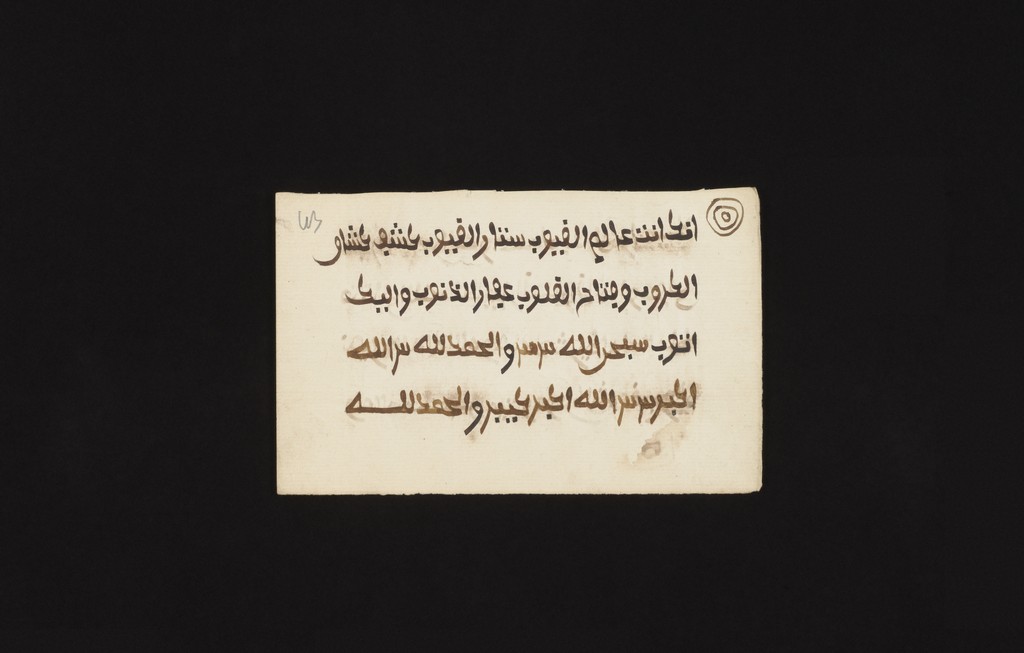 انك انت عالم الغيوب ستار العيوب كشيف كشاف
الكروب وفتاح القلوب غفار الذنوب واليك
اتوب سبحن الله س س و الحمد لله س الله
اكبر س س الله اكبر كبير و الحمد لله